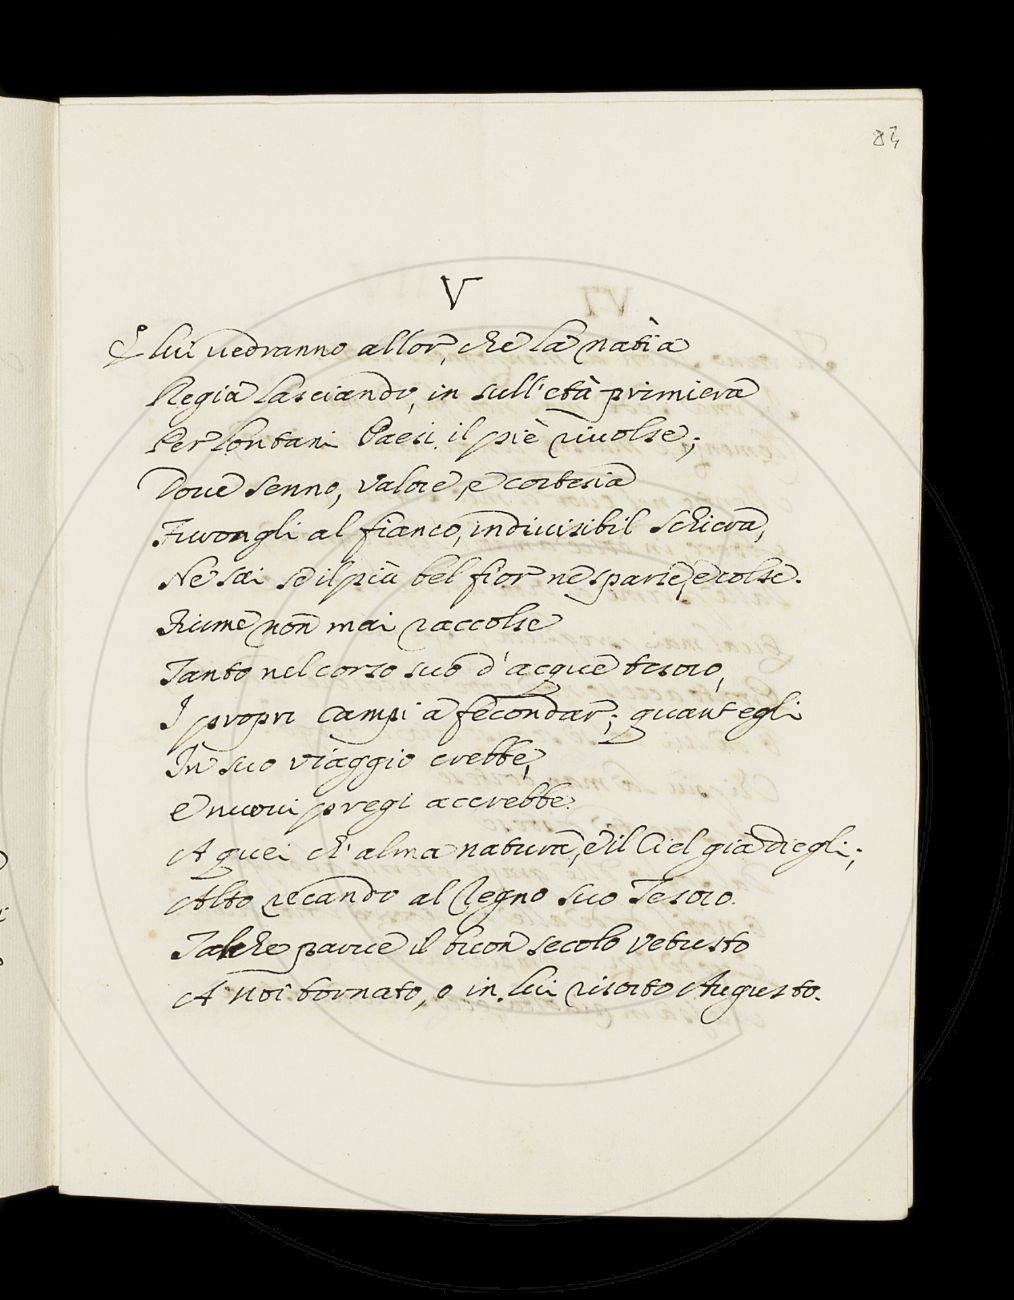 83
V
E lui vedranno allor, che la natìa
Regia lasciando, in sull'età primiera
Per lontani Paesi il piè rivolse;
Dove senno, valore, e cortesia
Furongli al fianco, indivisibil schiera,
Ne sai se il più bel fior ne sparse, e colse.
Fiume non mai raccolse
Tanto nel corso suo d'acque tesoro,
I propri campi a fecondar; quant'egli
In suo viaggio crebbe,
E nuovi pregi accrebbe
A quei ch'alma natura, e il Ciel già diegli;
Alto recando al Regno suo Tesoro.
Talche parve il buon secolo vetusto
A noi tornato, o in lui risorto Augusto.